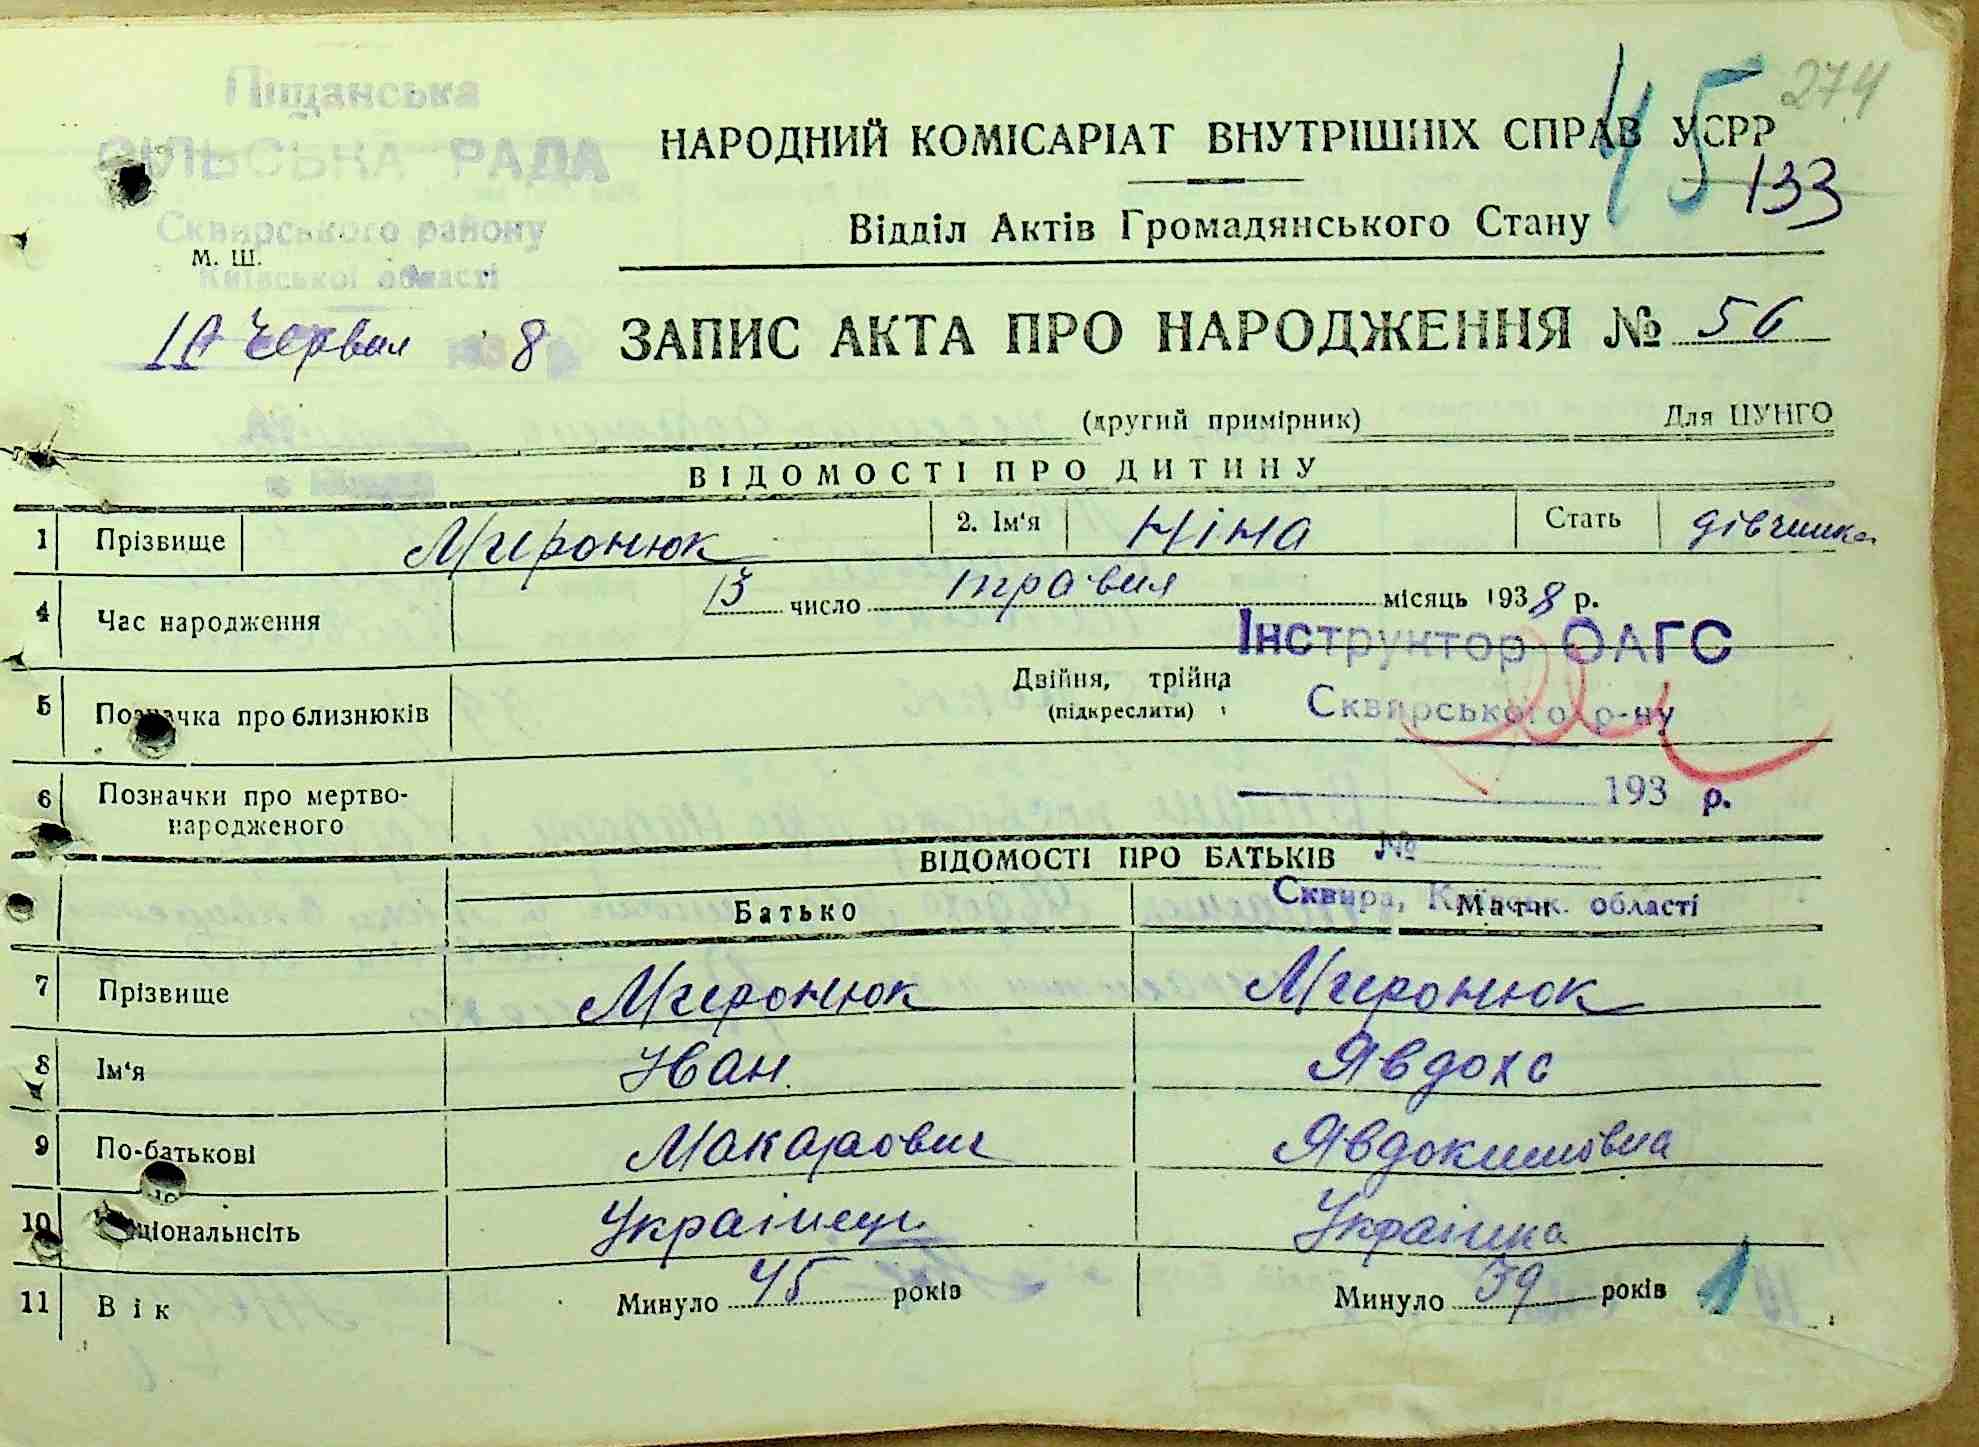 Піщанська
СІЛЬСЬКА РАДА
Сквирського району
Київської області
М. Ш.
10 Червня 193 8
274
45
133
НАРОДНИЙ КОМІСАРІАТ ВНУТРІШНІХ СПРАВ УСРР
Відділ Актів Громадянського Стану
ЗАПИС АКТА ПРО НАРОДЖЕННЯ № 56
(другий примірник) Для ЦУНГО
ВІДОМОСТІ ПРО ДИТИНУ
1 Прізвище Миронюк 2. Ім'я Ніна Стать дівчинка
4 Час народження 13 число травня місяць 1938 р.
Інструктор ОАГС
5 Позначка про близнюків Двійня, трійня
(підкреслити)
Сквирського р-ну
6 Позначки про мертво-
народженого
193 р.
ВІДОМОСТІ ПРО БАТЬКІВ №
Сквира, Київськ. області
Батько Мати
7 Прізвище Миронюк Миронюк
8 Ім'я Іван Явдоха
9 По-батькові Макарович Явдокимовна
10 Національнсіть Українець Українка
11 Вік Минуло 45 років Минуло 39 років